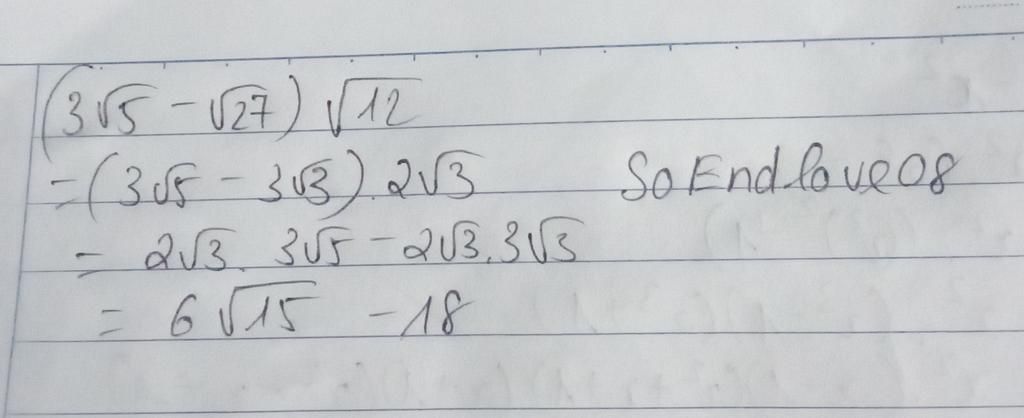 (3√5 - √27) √12
= (3√5 - 3√3) . 2√3 SoEndlove08
= 2√3 . 3√5 - 2√3 . 3√3
= 6√15 - 18